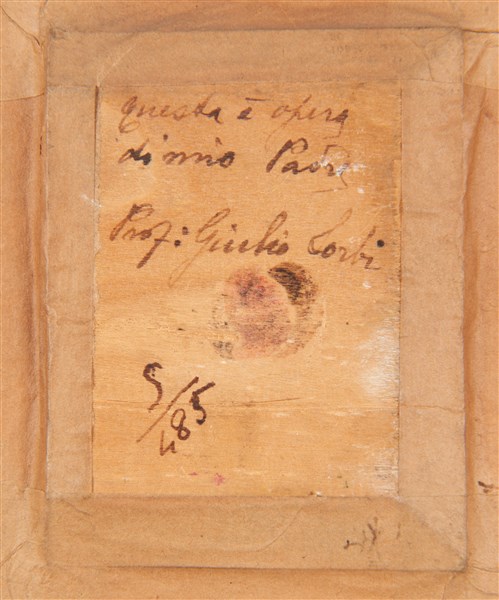 questa è opera
di mio Padre
Prof: Giulio Corbi
5/485